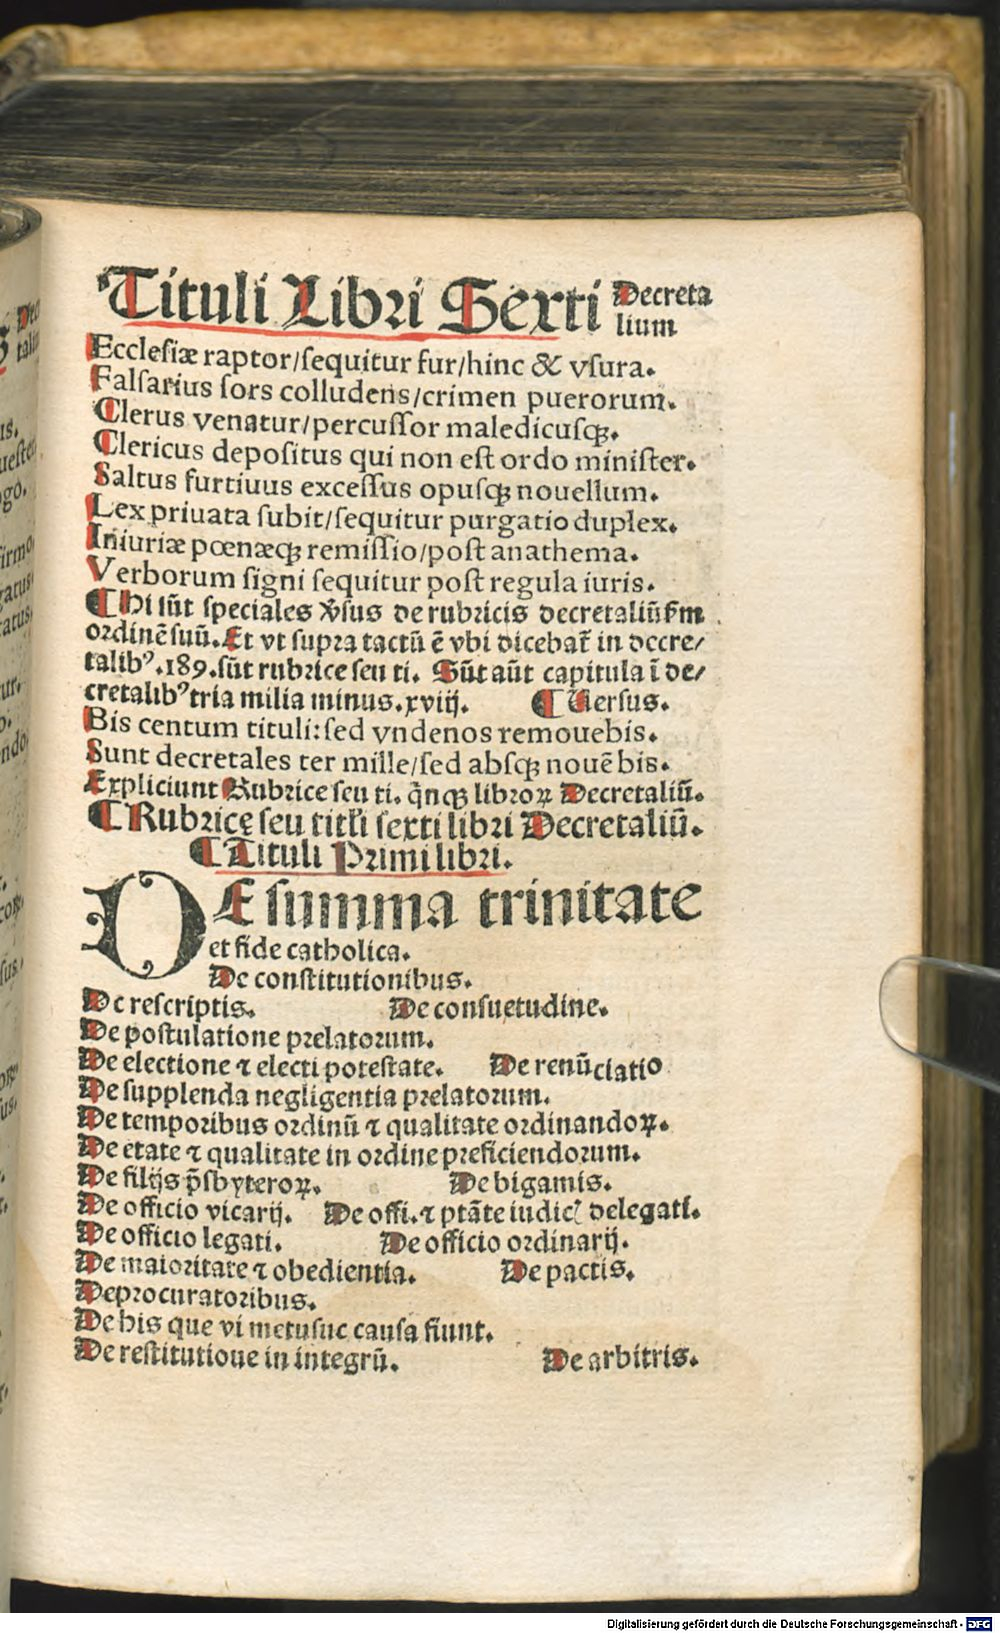 Tituli Libri Sexti Decreta
lium
Ecclesiæ raptor/sequitur fur/hinc & vsura.
Falsarius sors colludens/crimen puerorum.
Clerus venatur/percussor maledicusqꝫ.
Clericus depositus qui non est ordo minister.
Saltus furtiuus excessus opusqꝫ nouellum.
Lex priuata subit/sequitur purgatio duplex.
Iniuriæ pœnæqꝫ remissio/post anathema.
Verborum signi sequitur post regula iuris.
¶ Hi sūt speciales v̓sus de rubricis decretaliū ẜm
ordinē suū. Et vt supra tactū ē vbi dicebat̄ in decre/
talibꝰ.189.sūt rubrice seu ti. Sūt aūt capitula ī de/
cretalibꝰ tria milia minus.xviij. ¶ Uersus.
Bis centum tituli: sed vndenos remouebis.
Sunt decretales ter mille/sed absqꝫ nouē bis.
Expliciunt Rubrice seu ti. q̄nqꝫ libroꝝ Decretaliū.
¶ Rubricę seu titłi sexti libri Decretaliū.
¶ Tituli Primi libri.
DE summa trinitate
et fide catholica.
De constitutionibus.
De rescriptis. De consuetudine.
De postulatione prelatorum.
De electione ⁊ electi potestate. De renūciatio
De supplenda negligentia prelatorum.
De temporibus ordinū ⁊ qualitate ordinandoꝝ.
De etate ⁊ qualitate in ordine preficiendorum.
De filijs p̄sbyteroꝝ. De bigamis.
De officio vicarij. De offi. ⁊ ptāte iudic̄ delegati.
De officio legati. De officio ordinarij.
De maioritate ⁊ obedientia. De pactis.
De procuratoribus.
De his que vi metusue causa fiunt.
De restitutione in integrū. De arbitris.
Digitalisierung gefördert durch die Deutsche Forschungsgemeinschaft - DFG